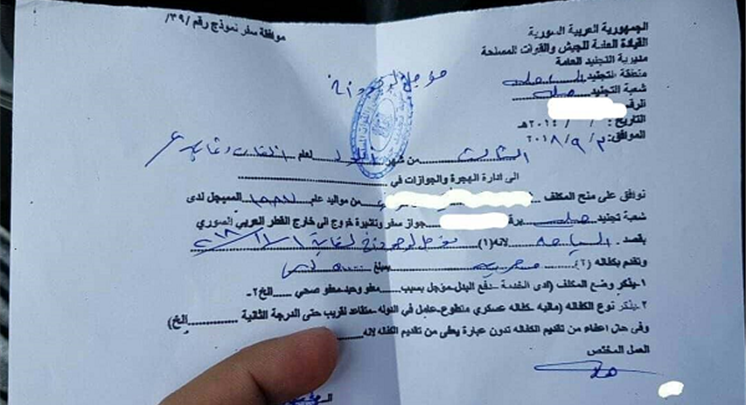 الجمهورية العربية السورية
القيادة العامة للجيش والقوات المسلحة
مديرية التجنيد العامة
منطقة التجنيد الساحلية
شعبة التجنيد جبلة
الرقم
التاريخ: / / ٢٠١٤هـ
الموافق: ٣/٩/٢٠١٨م
موافقة سفر نموذج رقم /٣٩/
مؤجل لوجوده خ
الثالث من شهر أيلول لعام ألفان وثمانية عشر
الى ادارة الهجرة والجوازات في
نوافق على منح المكلف من مواليد عام المسجل لدى
شعبة تجنيد جبلة برقم جواز سفر وتأشيرة خروج الى خارج القطر العربي السوري
بقصد السياحة لانه (١) مؤجل لوجوده خ لغاية
وتقدم بكفاله (٢) مصرفية بمبلغ
١-يذكر وضع المكلف (ادى الخدمة -دفع البدل-مؤجل بسبب معفو وحيد-معفو صحي الخ٢-
٢-يذكر نوع الكفاله (ماليه كفاله عسكري متطوع-عامل في الدوله -متقاعد لقريب حتى الدرجة الثانية الخ)
وفى حال اعفاء من تقديم الكفاله تدون عبارة يعفى من تقديم الكفاله لانه
العمل المختص